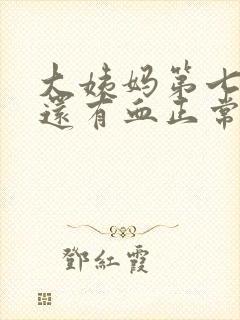 大姨妈第七
還有血正常
鄧紅霞